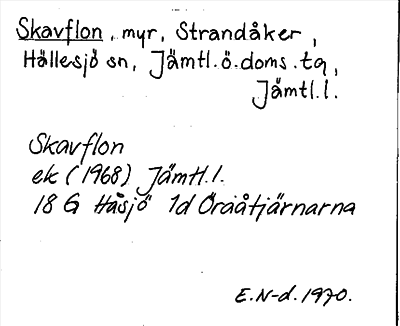 Skavflon, myr, Strandåker,
Hällesjö sn, Jämtl.ö.doms.tg,
Jämtl.l.
Skavflon
ek (1968) Jämtl.l.
18 G Håsjö 1d Öraåtjärnarna
E.N-d. 1970.